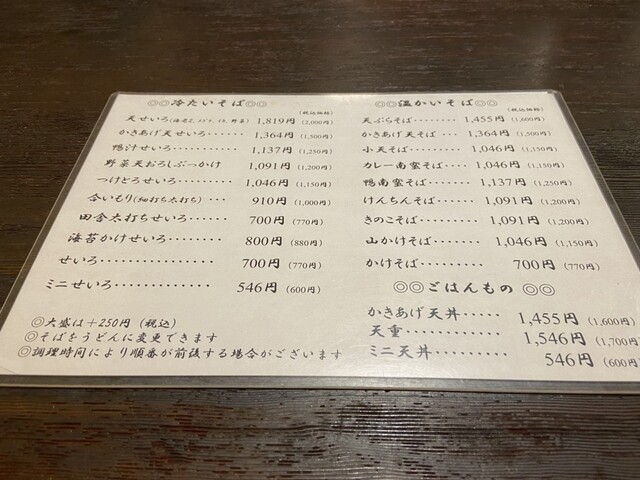 ◎◎冷たいそば◎◎
(税込価格)
天せいろ(海老2、メゴチ、イカ、野菜) 1,819円 (2,000円)
かきあげ天せいろ・・・ 1,364円 (1,500円)
鴨汁せいろ・・・・・・・・・・ 1,137円 (1,250円)
野菜天おろしぶっかけ 1,091円 (1,200円)
つけとろせいろ・・・・・・・ 1,046円 (1,150円)
合いもり(細打ち太打ち) ・・・ 910円 (1,000円)
田舎太打ちせいろ・・・・ 700円 (770円)
海苔かけせいろ・・・・・・・・ 800円 (880円)
せいろ・・・・・・・・・・・・・・・ 700円 (770円)
ミニせいろ・・・・・・・・・・・・・ 546円 (600円)
◎大盛は+250円 (税込)
◎そばをうどんに変更できます
◎調理時間により順番が前後する場合がございます
◎◎温かいそば◎◎
(税込価格)
天ぷらそば・・・・・・・・ 1,455円 (1,600円)
かきあげ天そば・・・ 1,364円 (1,500円)
小天そば・・・・・・・・・・ 1,046円 (1,150円)
カレー南蛮そば・・・・ 1,046円 (1,150円)
鴨南蛮そば・・・・・・・・ 1,137円 (1,250円)
けんちんそば・・・・・・・ 1,091円 (1,200円)
きのこそば・・・・・・・・・ 1,091円 (1,200円)
山かけそば・・・・・・・・・ 1,046円 (1,150円)
かけそば・・・・・・・・・・ 700円 (770円)
◎◎ごはんもの ◎◎
かきあげ天丼・・・・・ 1,455円 (1,600円)
天重・・・・・・・・・・・・・・ 1,546円 (1,700円)
ミニ天丼・・・・・・・・・・ 546円 (600円)